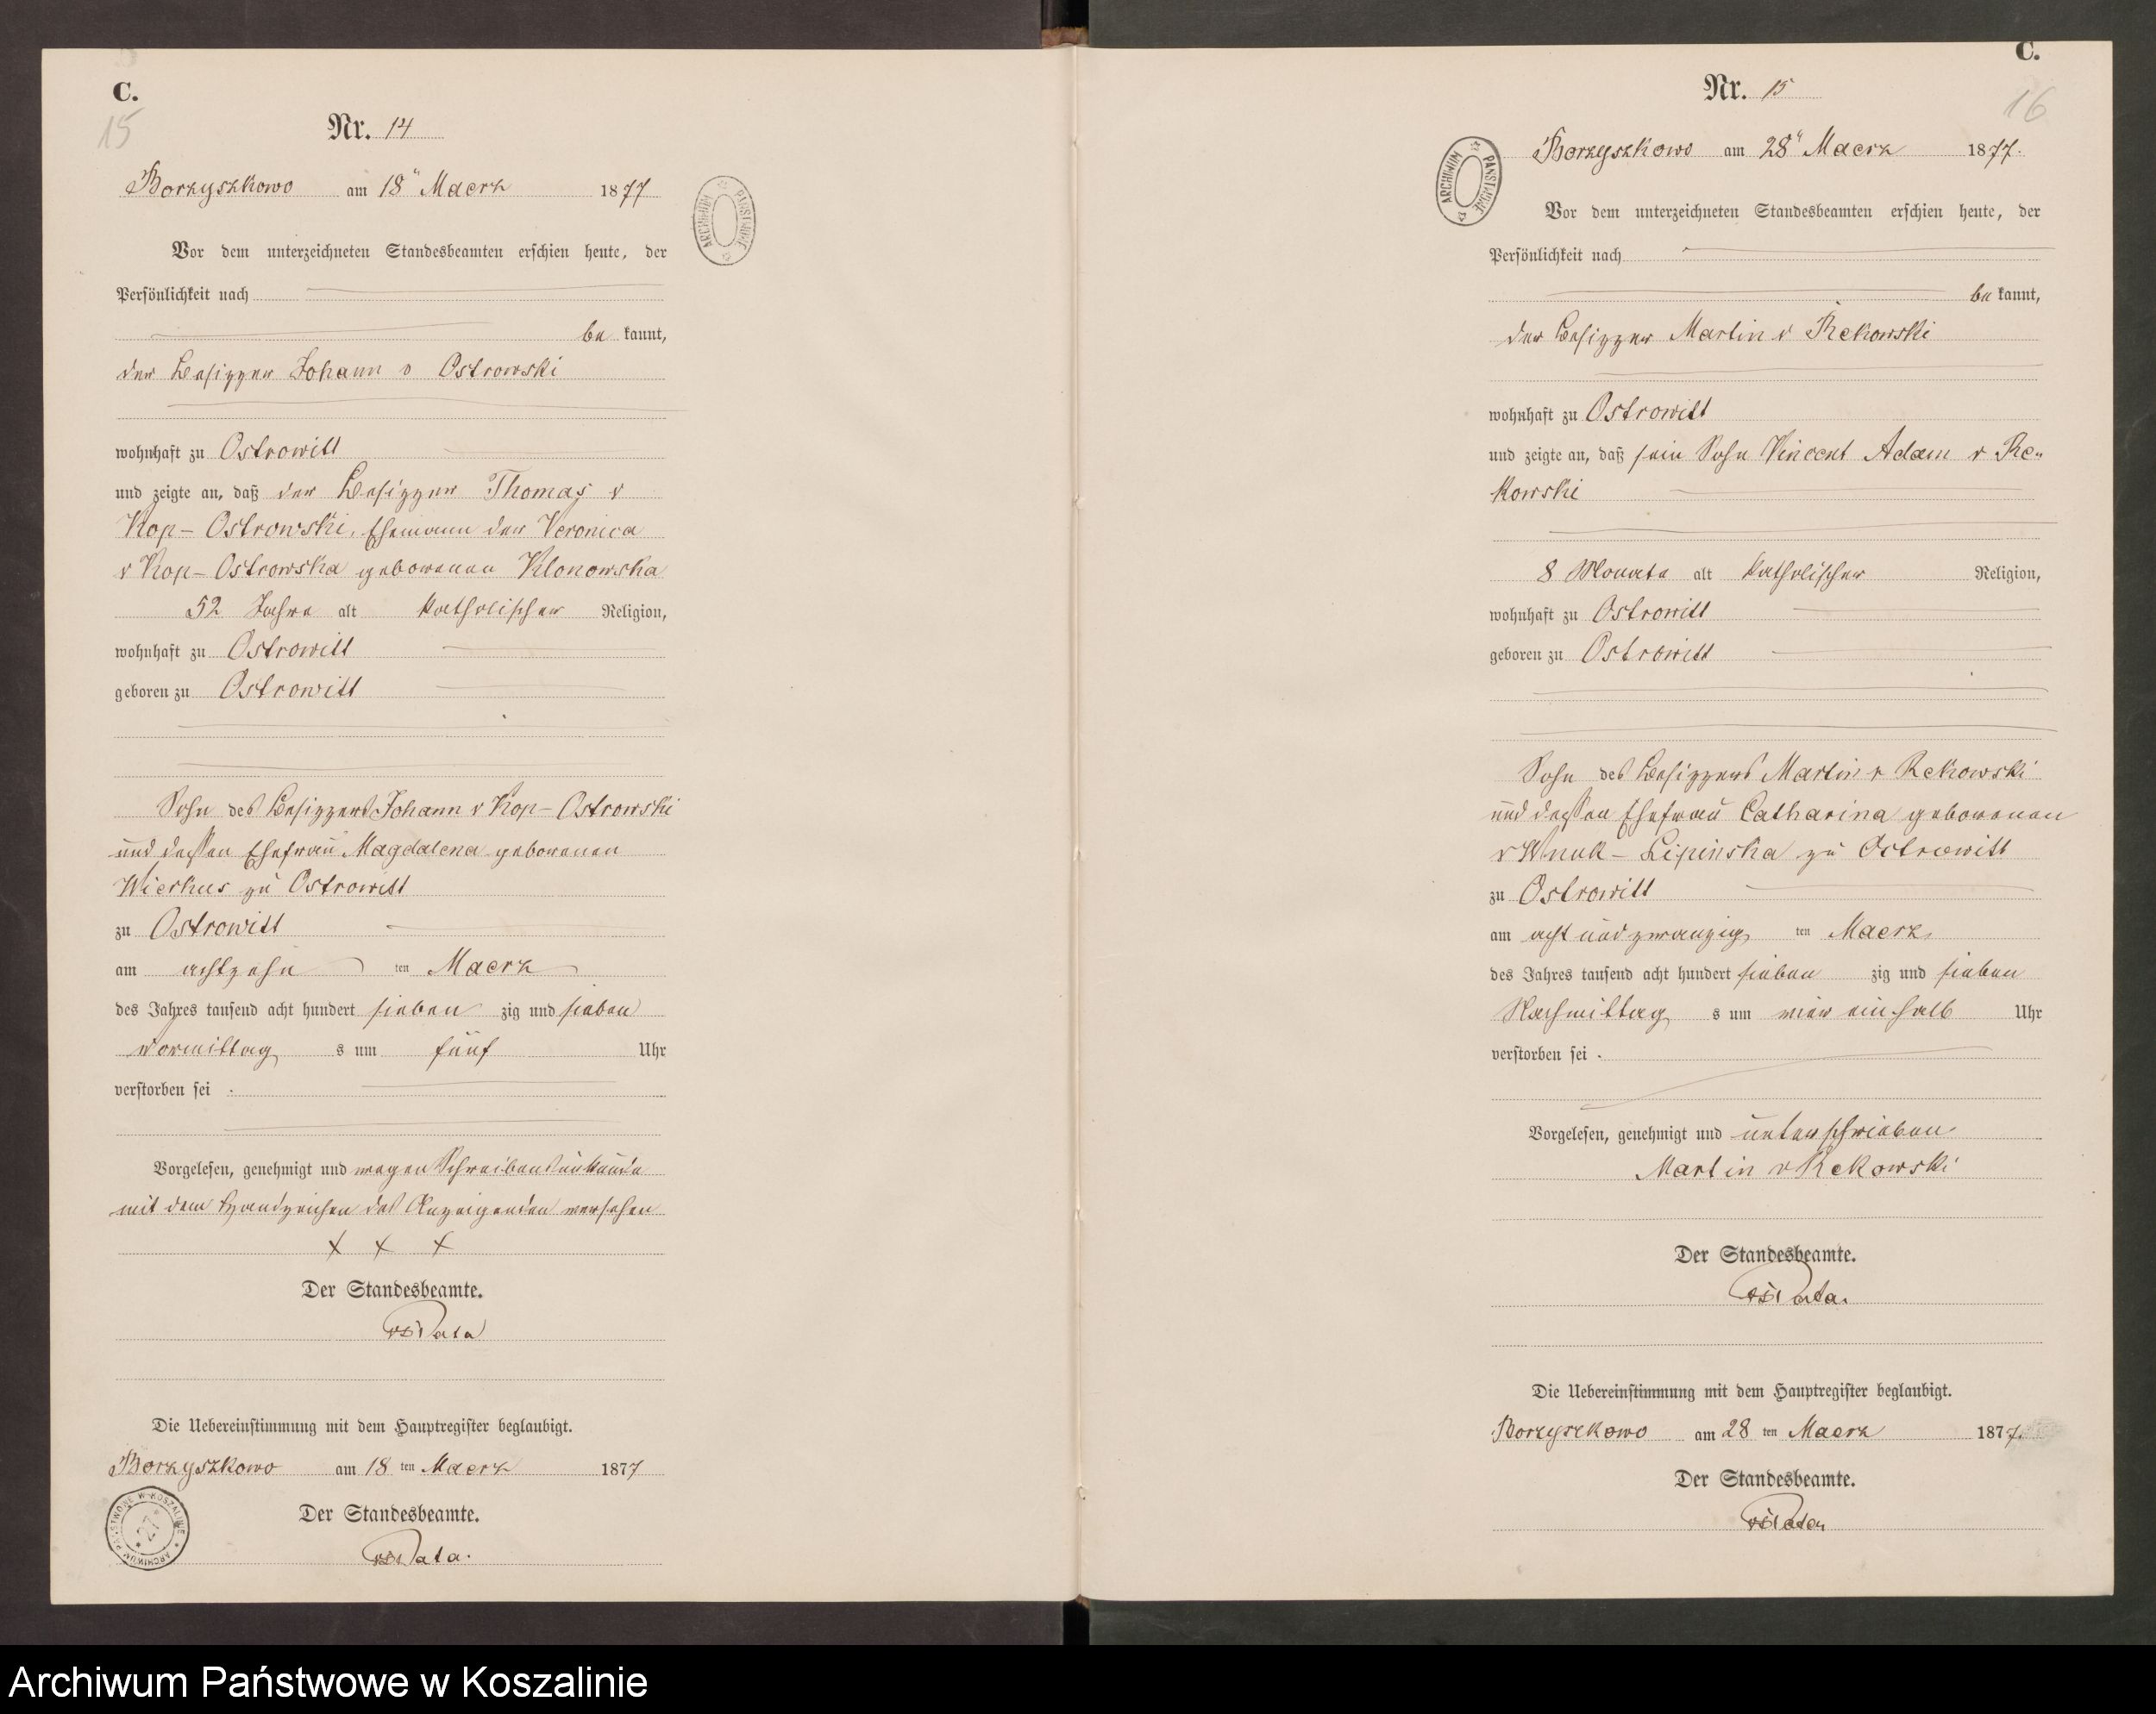 C.
15
Nr. 14
Borzyszkowo am 18" Maerz 1877
Vor dem unterzeichneten Standesbeamten erschien heute, der
Persönlichkeit nach
be kannt,
der Besizzer Johann v Ostrowski
wohnhaft zu Ostrowitt
und zeigte an, daß der Besizzer Thomas v
Kop- Ostrowski, Ehemann der Veronica
v Kop- Ostrowska geborenen Klonowska
52 Jahre alt katholischer Religion,
wohnhaft zu Ostrowitt
geboren zu Ostrowitt
Sohn des Besizzers Johann v Kop- Ostrowski
und dessen Ehefrau Magdalena geborenen
Wierkus zu Ostrowitt
zu Ostrowitt
am achtzehn ten Maerz
des Jahres tausend acht hundert sieben zig und sieben
Vormittag s um fünf Uhr
verstorben sei .
Vorgelesen, genehmigt und wegen Schreibensunkunde
mit dem Handzeichen des Anzeigenden versehen
+ + +
Der Standesbeamte.
Die Uebereinstimmung mit dem Hauptregister beglaubigt.
Borzyszkowo am 18 ten Maerz 1877
Der Standesbeamte.
ARCHIWUM PAŃSTWOWE W KOSZALINIE
* 27 *
ARCHIWUM PAŃSTWOWE
C.
16
Nr. 15
ARCHIWUM PAŃSTWOWE
Borzyszkowo am 28" Maerz 1877.
Vor dem unterzeichneten Standesbeamten erschien heute, der
Persönlichkeit nach
be kannt,
der Besizzer Martin v Rekowski
wohnhaft zu Ostrowitt
und zeigte an, daß sein Sohn Vincent Adam v Re„
kowski
8 Monate alt katholischer Religion,
wohnhaft zu Ostrowitt
geboren zu Ostrowitt
Sohn des Besizzers Martin v Rekowski
und dessen Ehefrau Catharina geborenen
v Wnuk- Lipinska zu Ostrowitt
zu Ostrowitt
am acht und zwanzig ten Maerz
des Jahres tausend acht hundert sieben zig und sieben
Nachmittag s um vier ein halb Uhr
verstorben sei .
Vorgelesen, genehmigt und unterschrieben
Martin v Rekowski
Der Standesbeamte.
Die Uebereinstimmung mit dem Hauptregister beglaubigt.
Borzyszkowo am 28 ten Maerz 1877.
Der Standesbeamte.
Archiwum Państwowe w Koszalinie